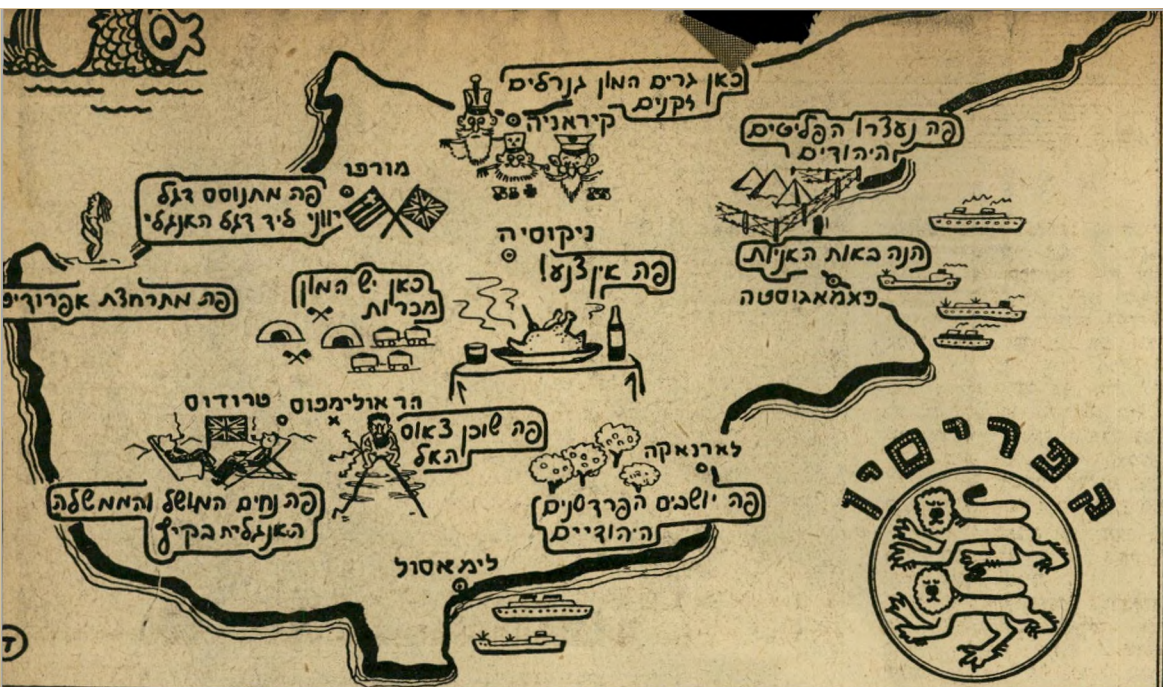 כאן גרים המון גנרלים
זקנים
קיראניה
פה נעצרו הפליטים
היהודים
מורפו
פה מתנוסס דגל
יווני ליד דגל האנגלי
ניקוסיה
פה אין צנע!
הנה באות האניות
פאמאגוסטה
פה מתרחצת אפרודיט
כאן יש המון
מכרות
טרודוס
הר אולימפוס
פה שוכן צאוס
האל
לארנאקה
פה יושבים הפרדסנים
היהודיים
פה נחים המושל והממשלה
האנגלית בקיץ
לימאסול
קפריסין